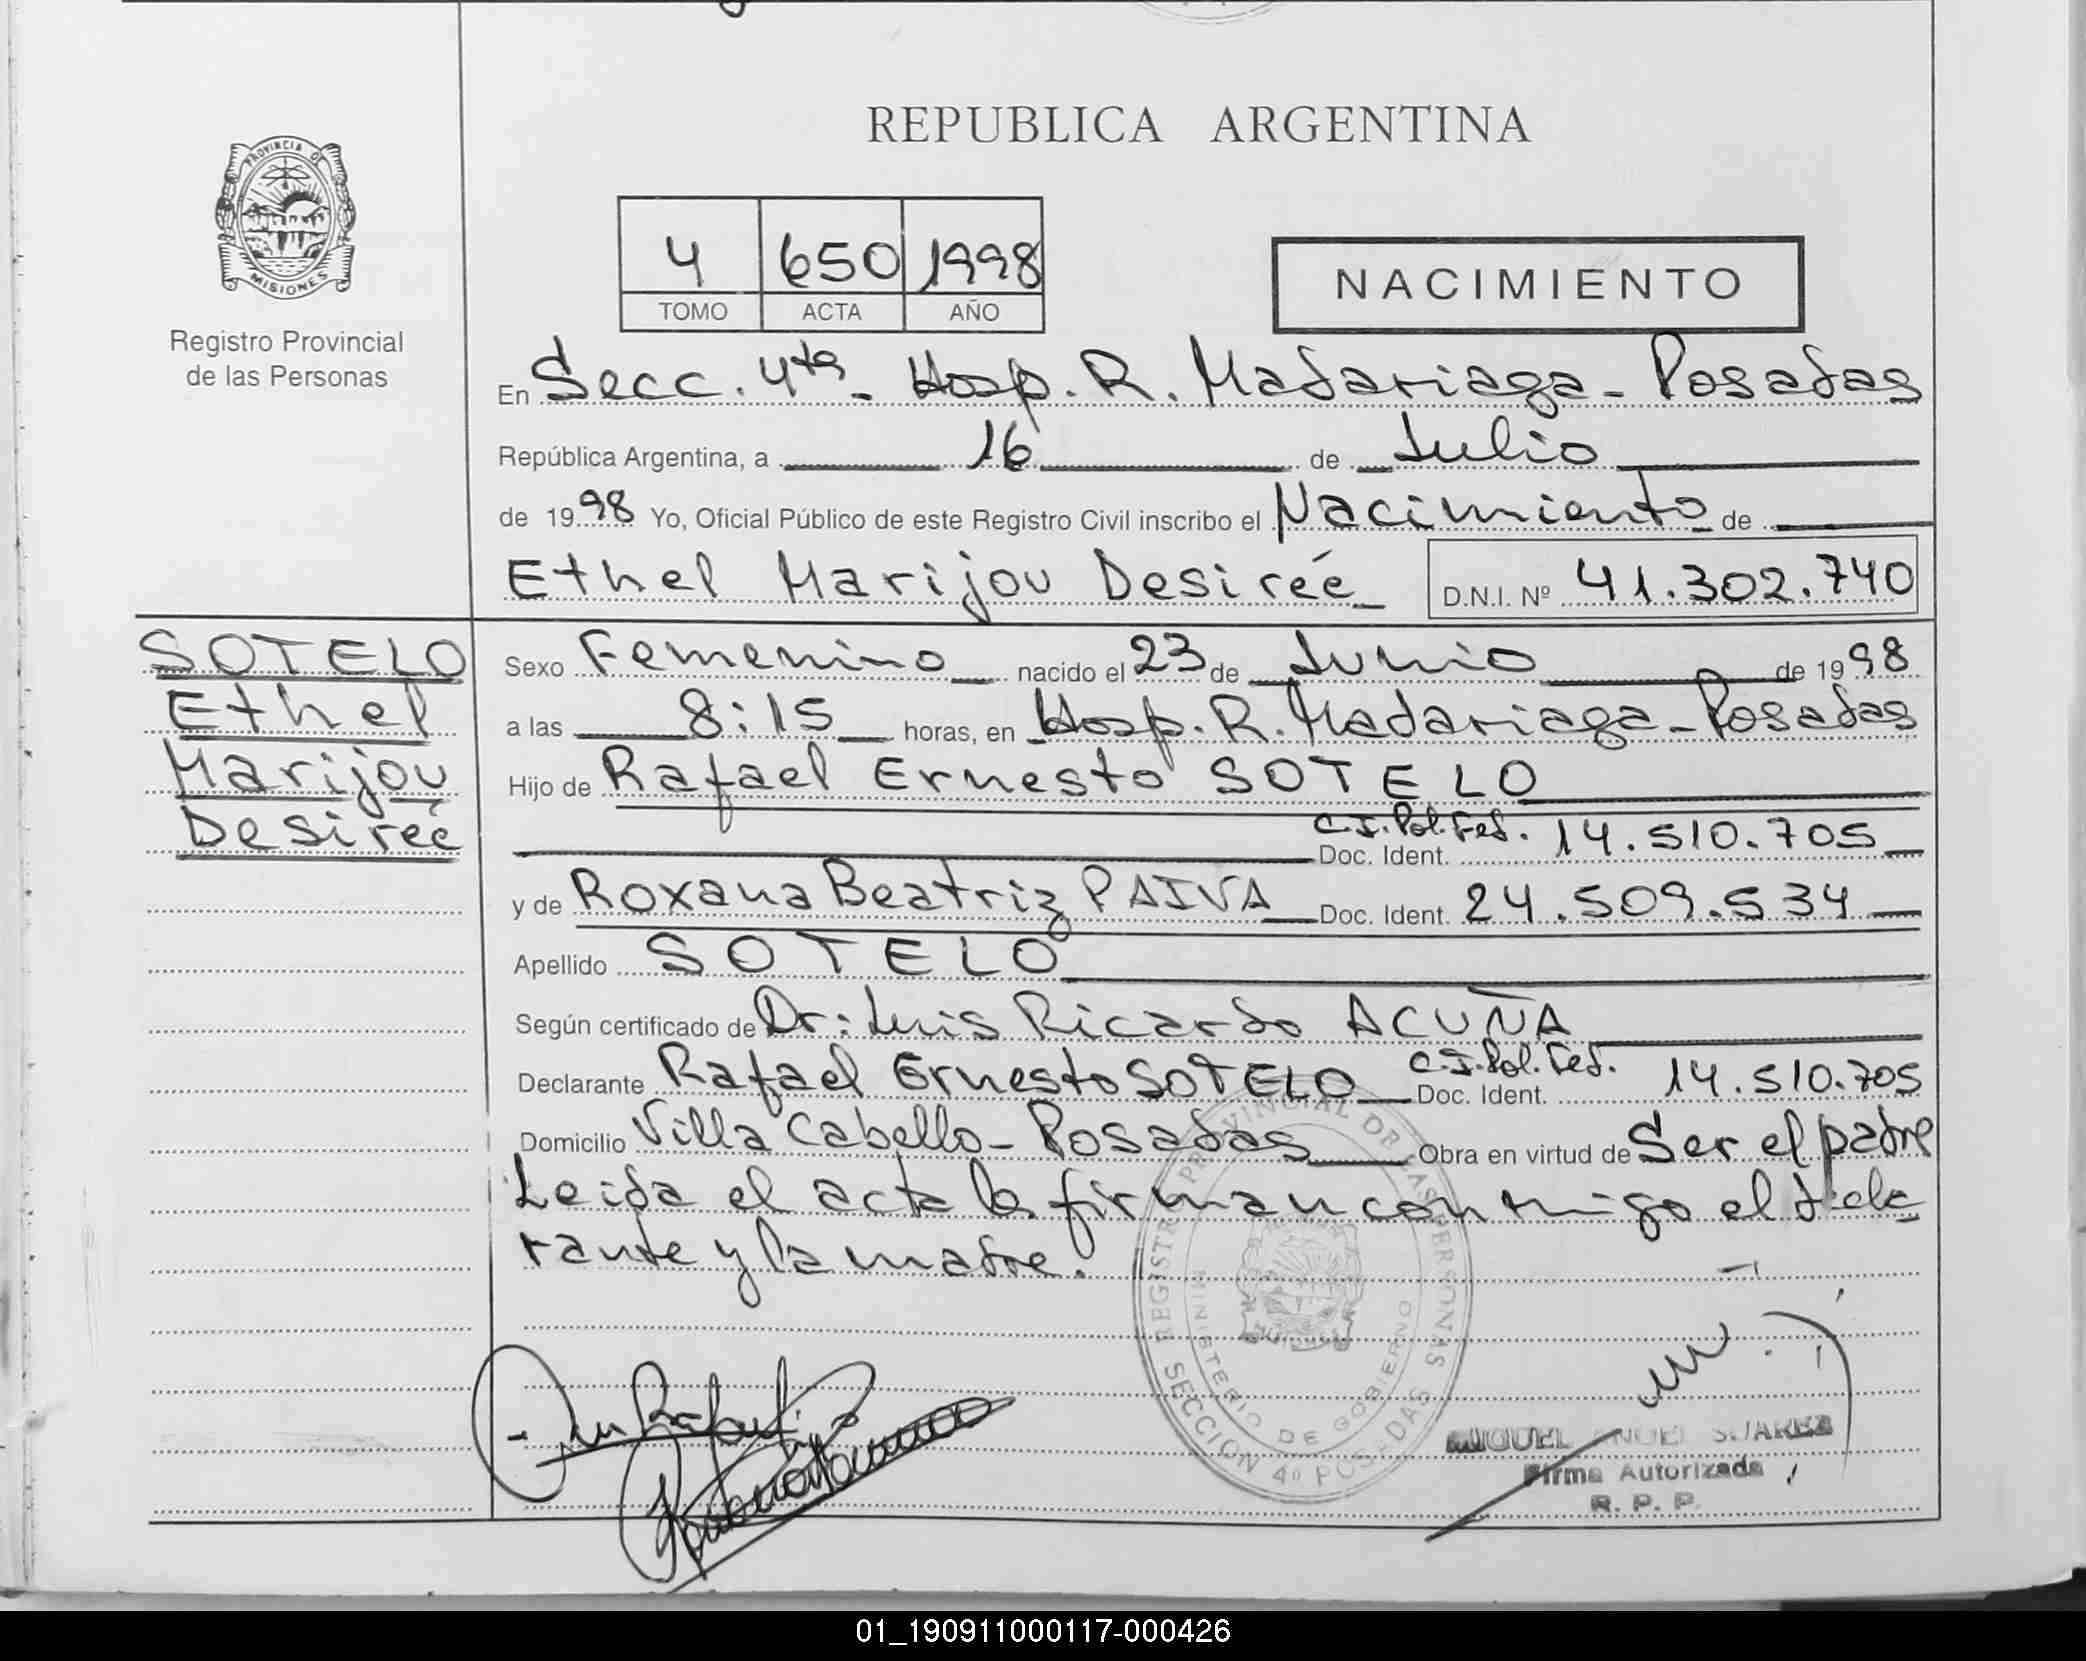 REPUBLICA ARGENTINA
PROVINCIA DE
MISIONES
Registro Provincial
de las Personas
4 650 1998
TOMO ACTA AÑO
NACIMIENTO
En Secc. 4ta - Hosp. R. Madariaga - Posadas
República Argentina, a 16 de Julio
de 1998 Yo, Oficial Público de este Registro Civil inscribo el Nacimiento de
Ethel Marijou Desireé D.N.I. Nº 41.302.740
SOTELO
Ethel
Marijou
Desireé
Sexo Femenino nacido el 23 de Junio de 1998
a las 8:15 horas, en Hosp. R. Madariaga - Posadas
Hijo de Rafael Ernesto SOTELO
C.I. Pol. Fed.
Doc. Ident. 14.510.705
y de Roxana Beatriz PAIVA Doc. Ident. 24.509.534
Apellido SOTELO
Según certificado de Dr: Luis Ricardo ACUÑA
Declarante Rafael Ernesto SOTELO C.I. Pol. Fed. Doc. Ident. 14.510.705
Domicilio Villa Cabello - Posadas Obra en virtud de Ser el padre
Leida el acta la firman conmigo el decla
rante y la madre.
REGISTRO PROVINCIAL DE LAS PERSONAS
SECCION 4º POSADAS
MINISTERIO DE GOBIERNO
MISIONES
MIGUEL ANGEL SUAREZ
Firma Autorizada
R. P. P.
01_190911000117-000426